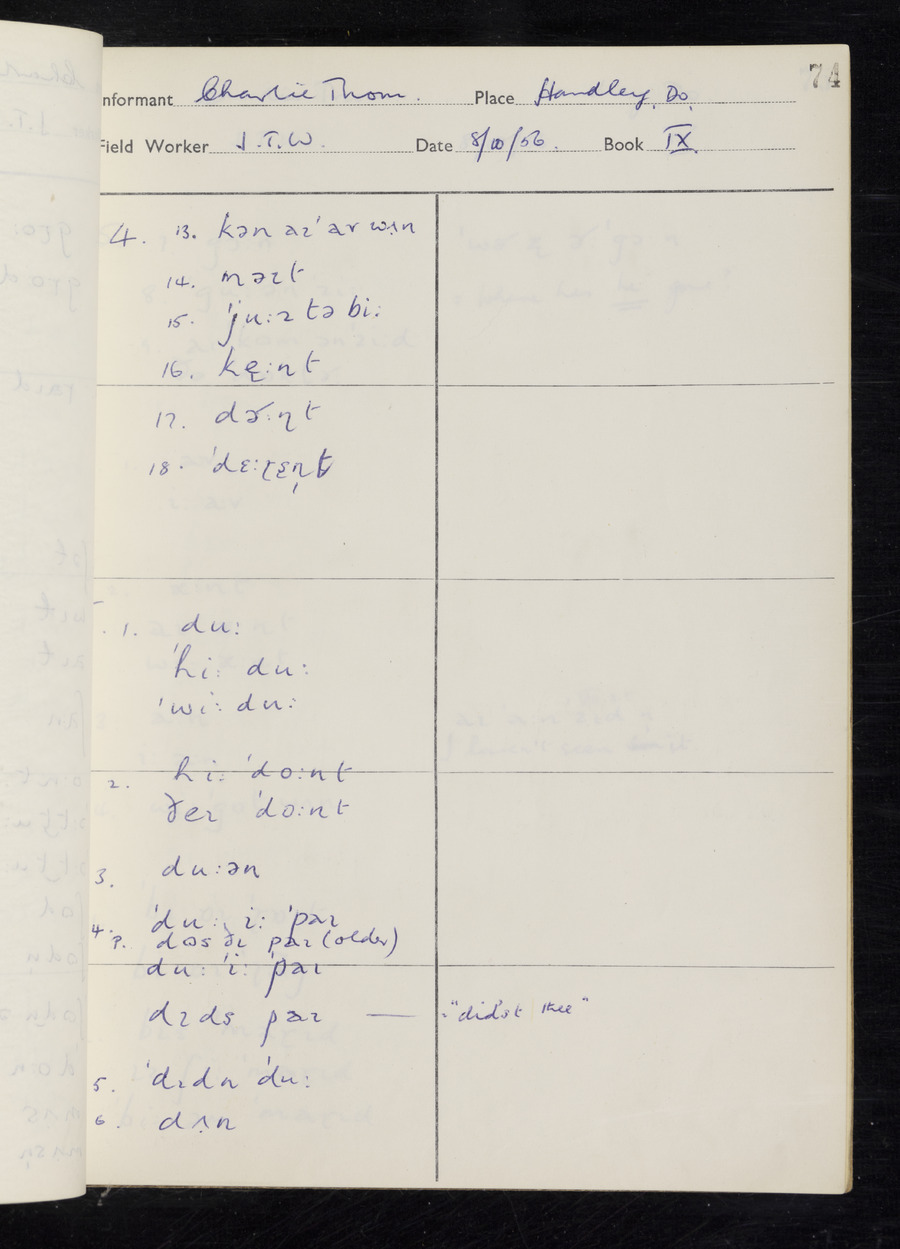 74
Informant Charlie Thom. Place Handley, Do.
Field Worker J.T.W. Date 8/10/56. Book IX.
4. 13. kən aɪ'ar wʌ̣n
14. məɪt
15. 'ju:z tə bi:
16. kę:nt
17. də˞:ɳt
18. 'dɛ:ɽɛɳt
1. du:
'hi: du:
'wi: du:
2. hi: 'do:nt
ðeɪ 'do:nt
3. du:ən
4. 'du: i: 'paɪ
P. dʊs ðɪ paɪ (older)
du: 'i: 'paɪ
dɪds paɪ — "did'st thee"
5. 'dɪdn 'du:
6. dʌ̣n